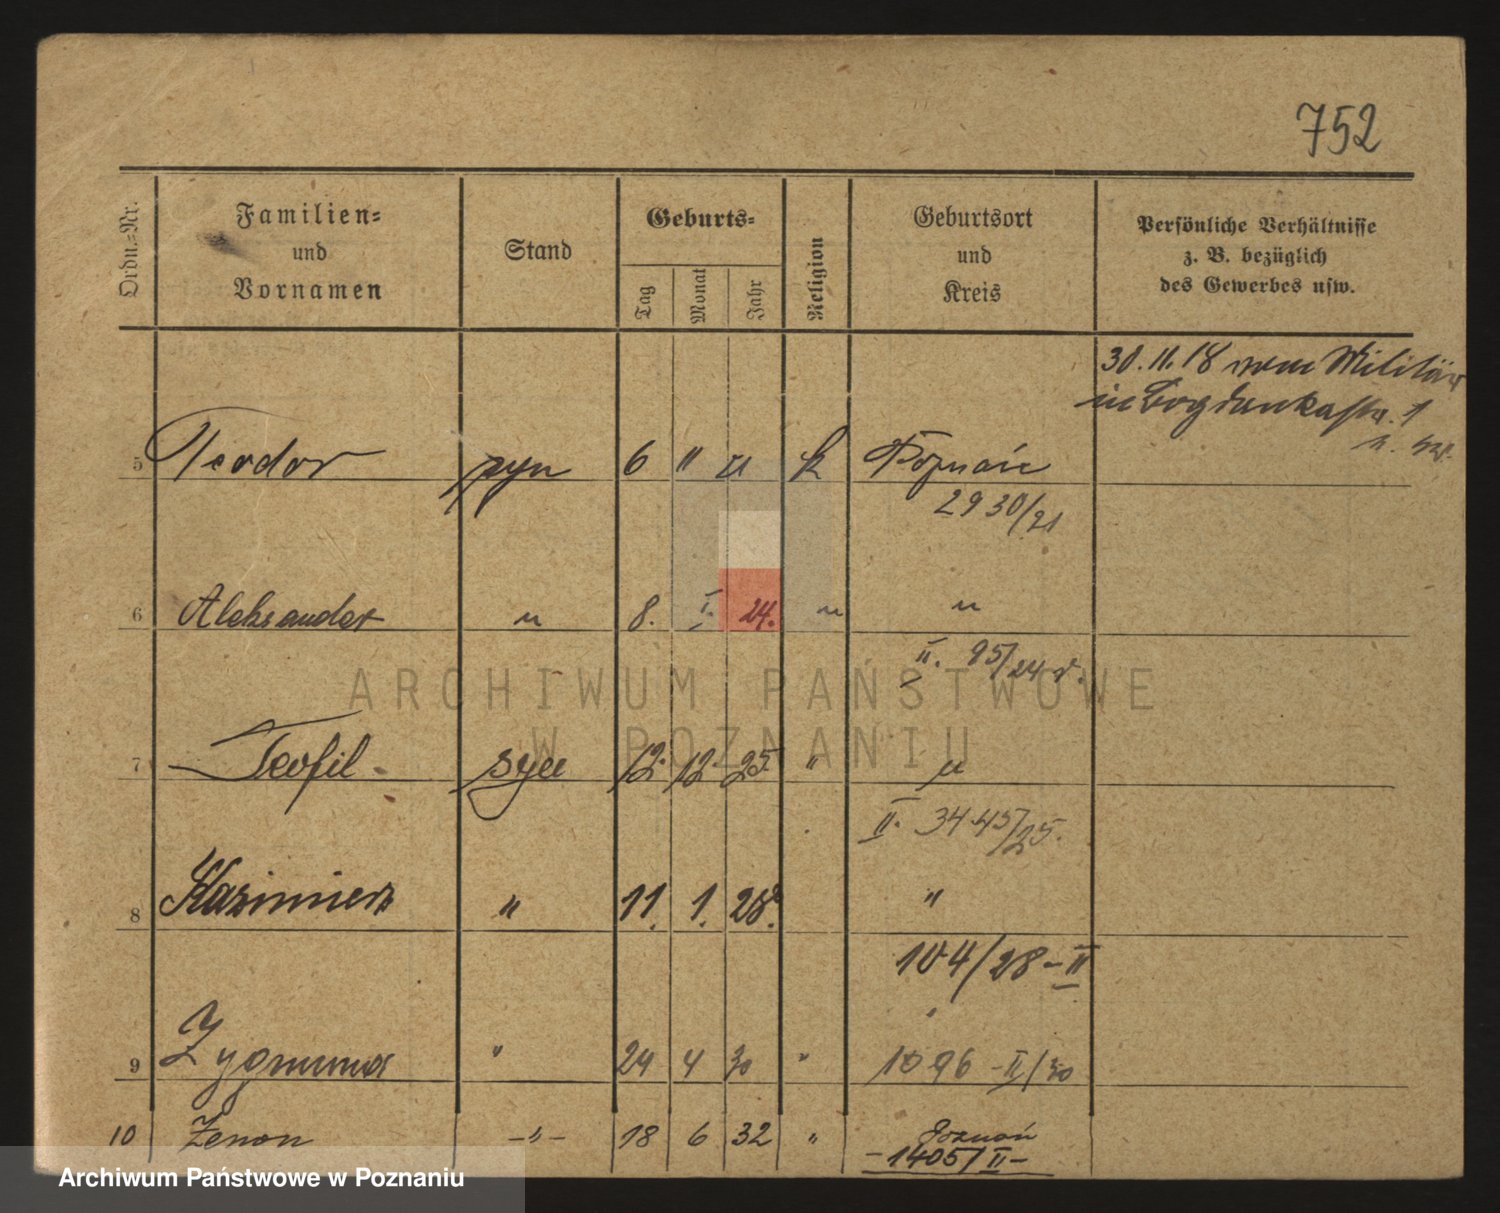 752
Ordn.-Nr.
Familien-
und
Vornamen
Stand
Geburts-
Tag
Monat
Jahr
Religion
Geburtsort
und
Kreis
Persönliche Verhältnisse
z. B. bezüglich
des Gewerbes usw.
30.11.18 vom Militär
in Bogdankastr. 1
5 Teodor syn 6 11 21 k Poznań
2930/21
6 Aleksander " 8. I. 24. " "
II. 95/24
7 Teofil - syn 12. 12. 25. " "
II. 3445/25.
8 Kazimierz " 11. 1. 28. "
104/28-II
9 Zygmund " 24 4 30 "
1096-II/30
10 Zenon -"- 18 6 32 " Poznań
-1405/II-
ARCHIWUM PAŃSTWOWE
W POZNANIU
Archiwum Państwowe w Poznaniu